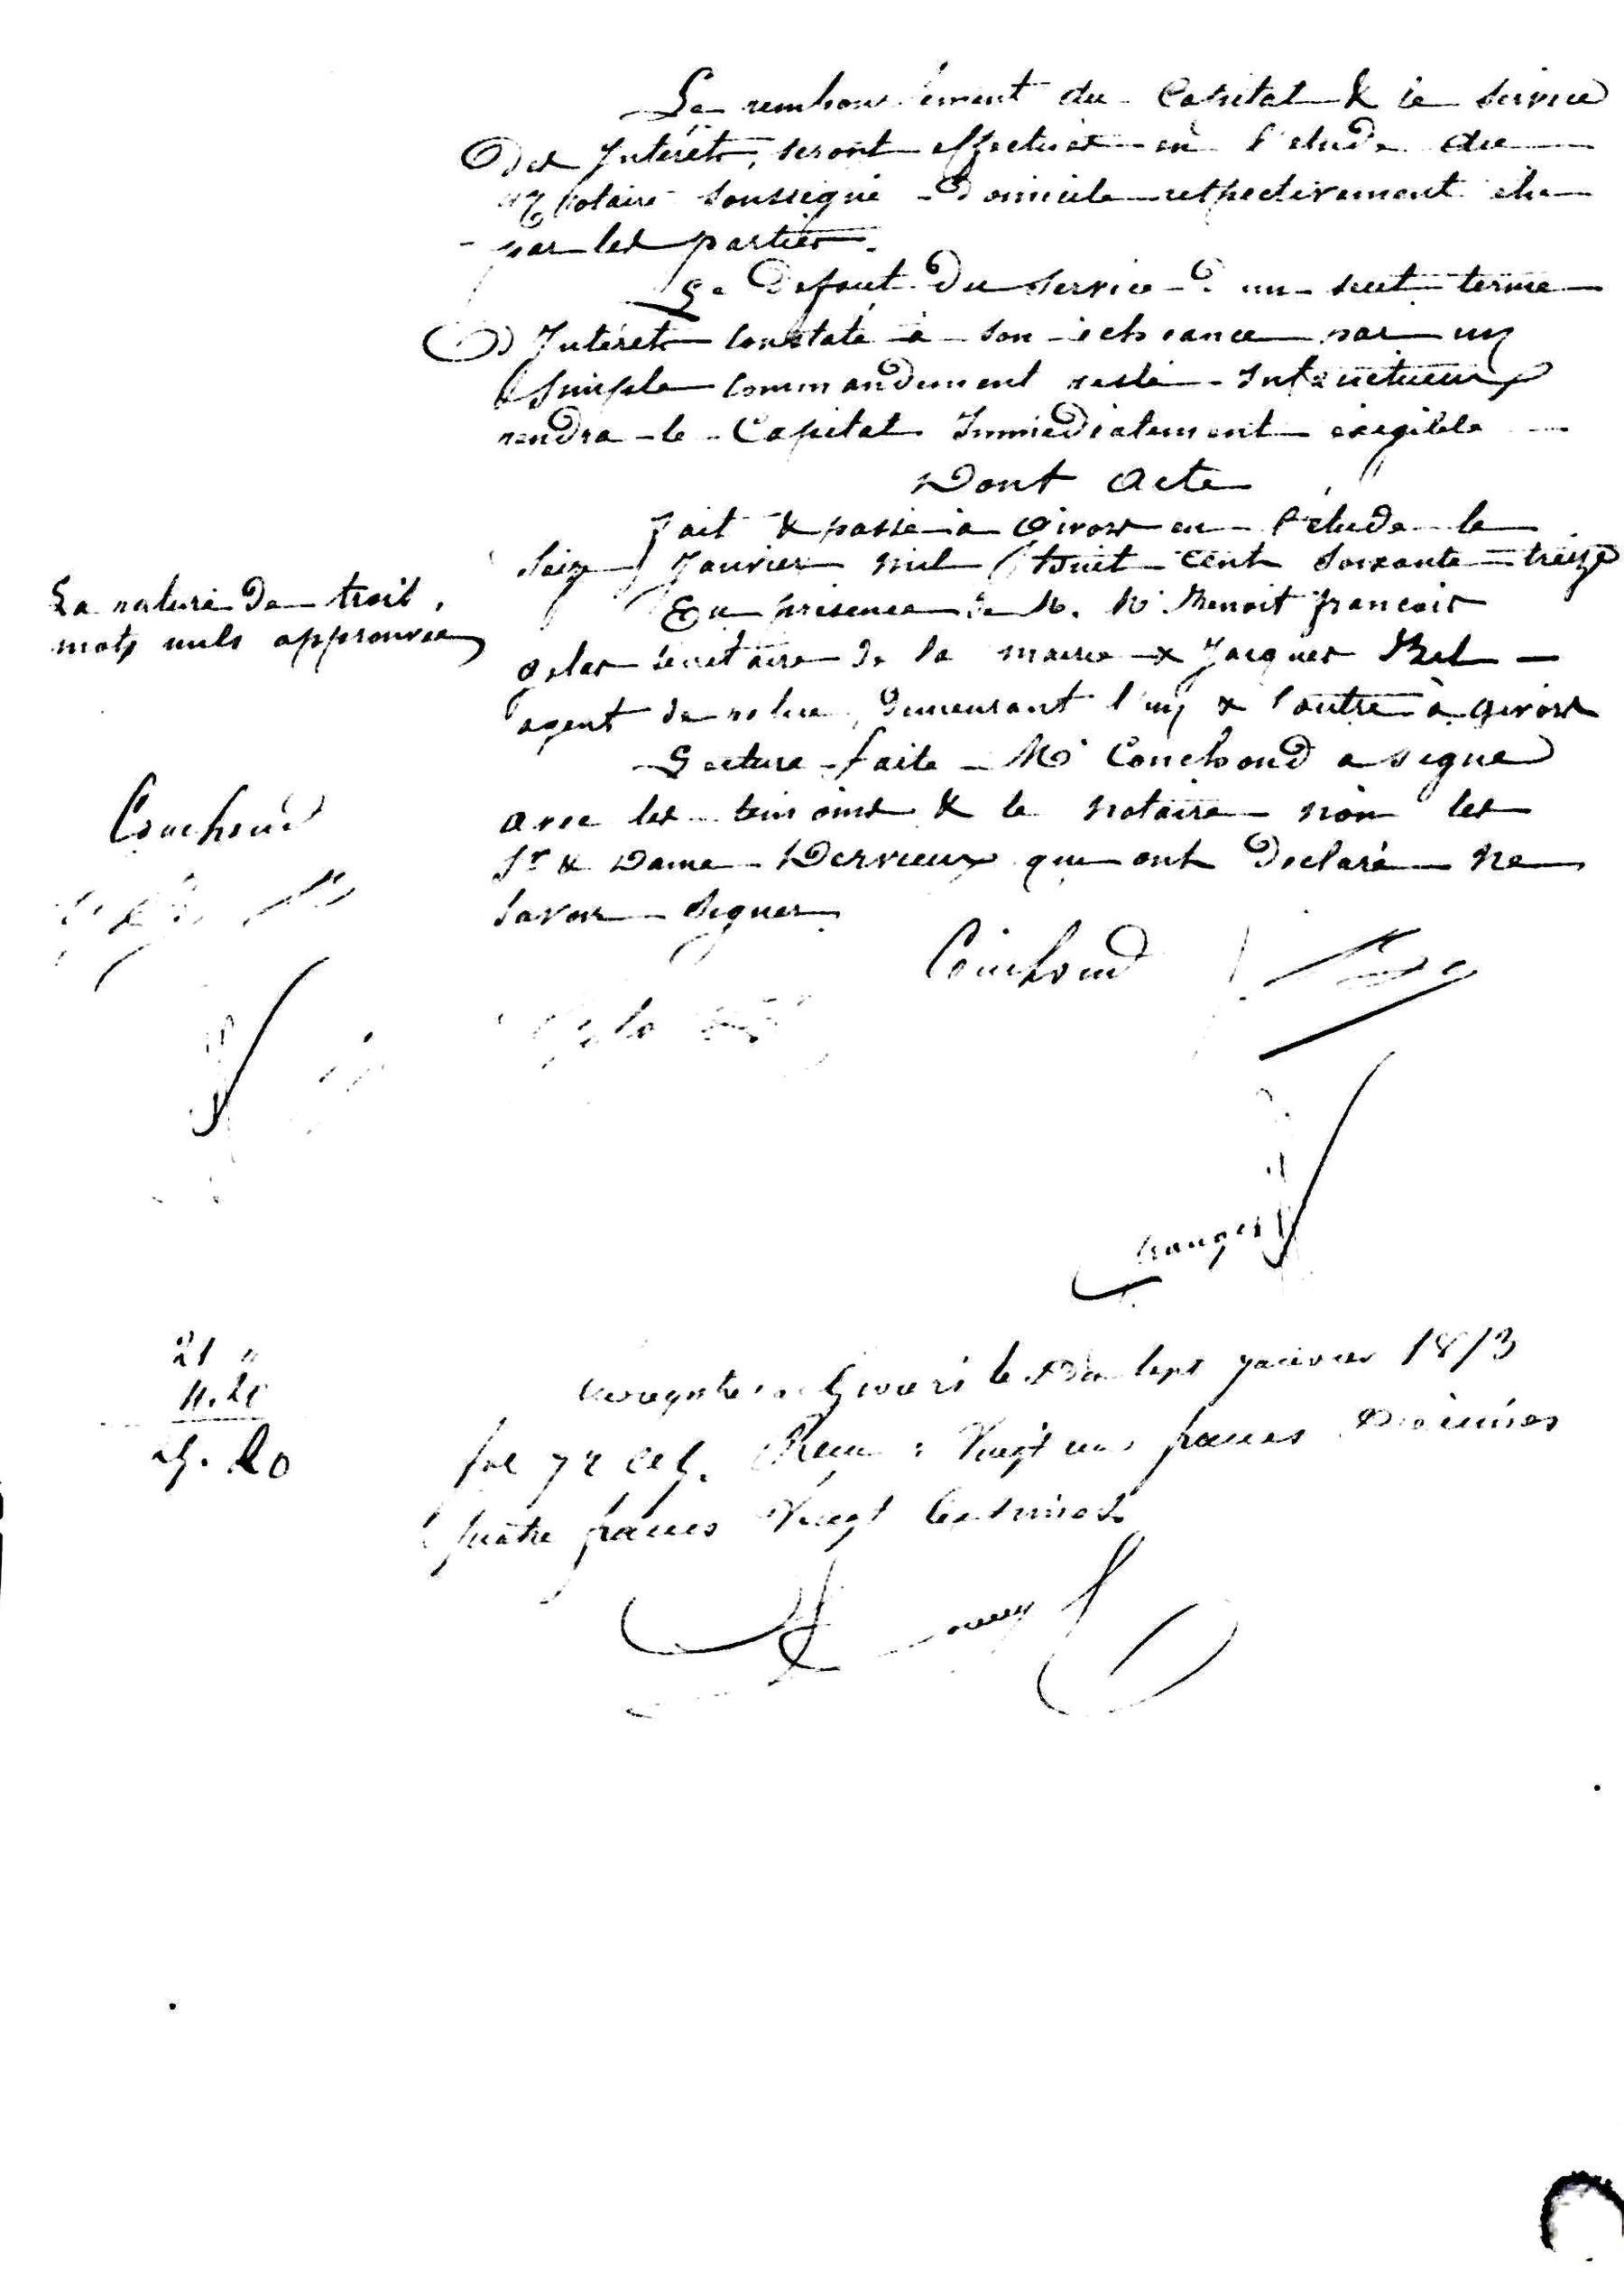 Le remboursement du Capital & le service
des Intérêts, seront effectués en l'etude du
Notaire soussigné Domicile respectivement elu
par les parties.
Le Defaut Du Service d'un seul terme
D Intérêts Constaté à son echeance par un
Simple Commandement resté Infructueux
rendra le Capital Immédiatement exigible
Dont Acte
fait & passé à Givors en l'etude le
Seize Janvier mil huit cent soixante treize
La rature De trois
mots nuls approuvée
En présence de M. Mr Benoit françois
secrétaire De la mairie & Jacques Bel
agent de police, Demeurant l'un & l'autre à Givors
Lecture faite Mr Couchoud a signé
avec les temoins & le notaire non les
Sr & Dame Dervieux qui ont Declaré ne
Savoir Signer
Couchoud
Couchoud
21 "
4.20
25.20
Enregistré à Givors le Dix sept janvier 1873
fol 72 Reçu : Vingt un francs Décimes
Quatre francs Vingt Centimes